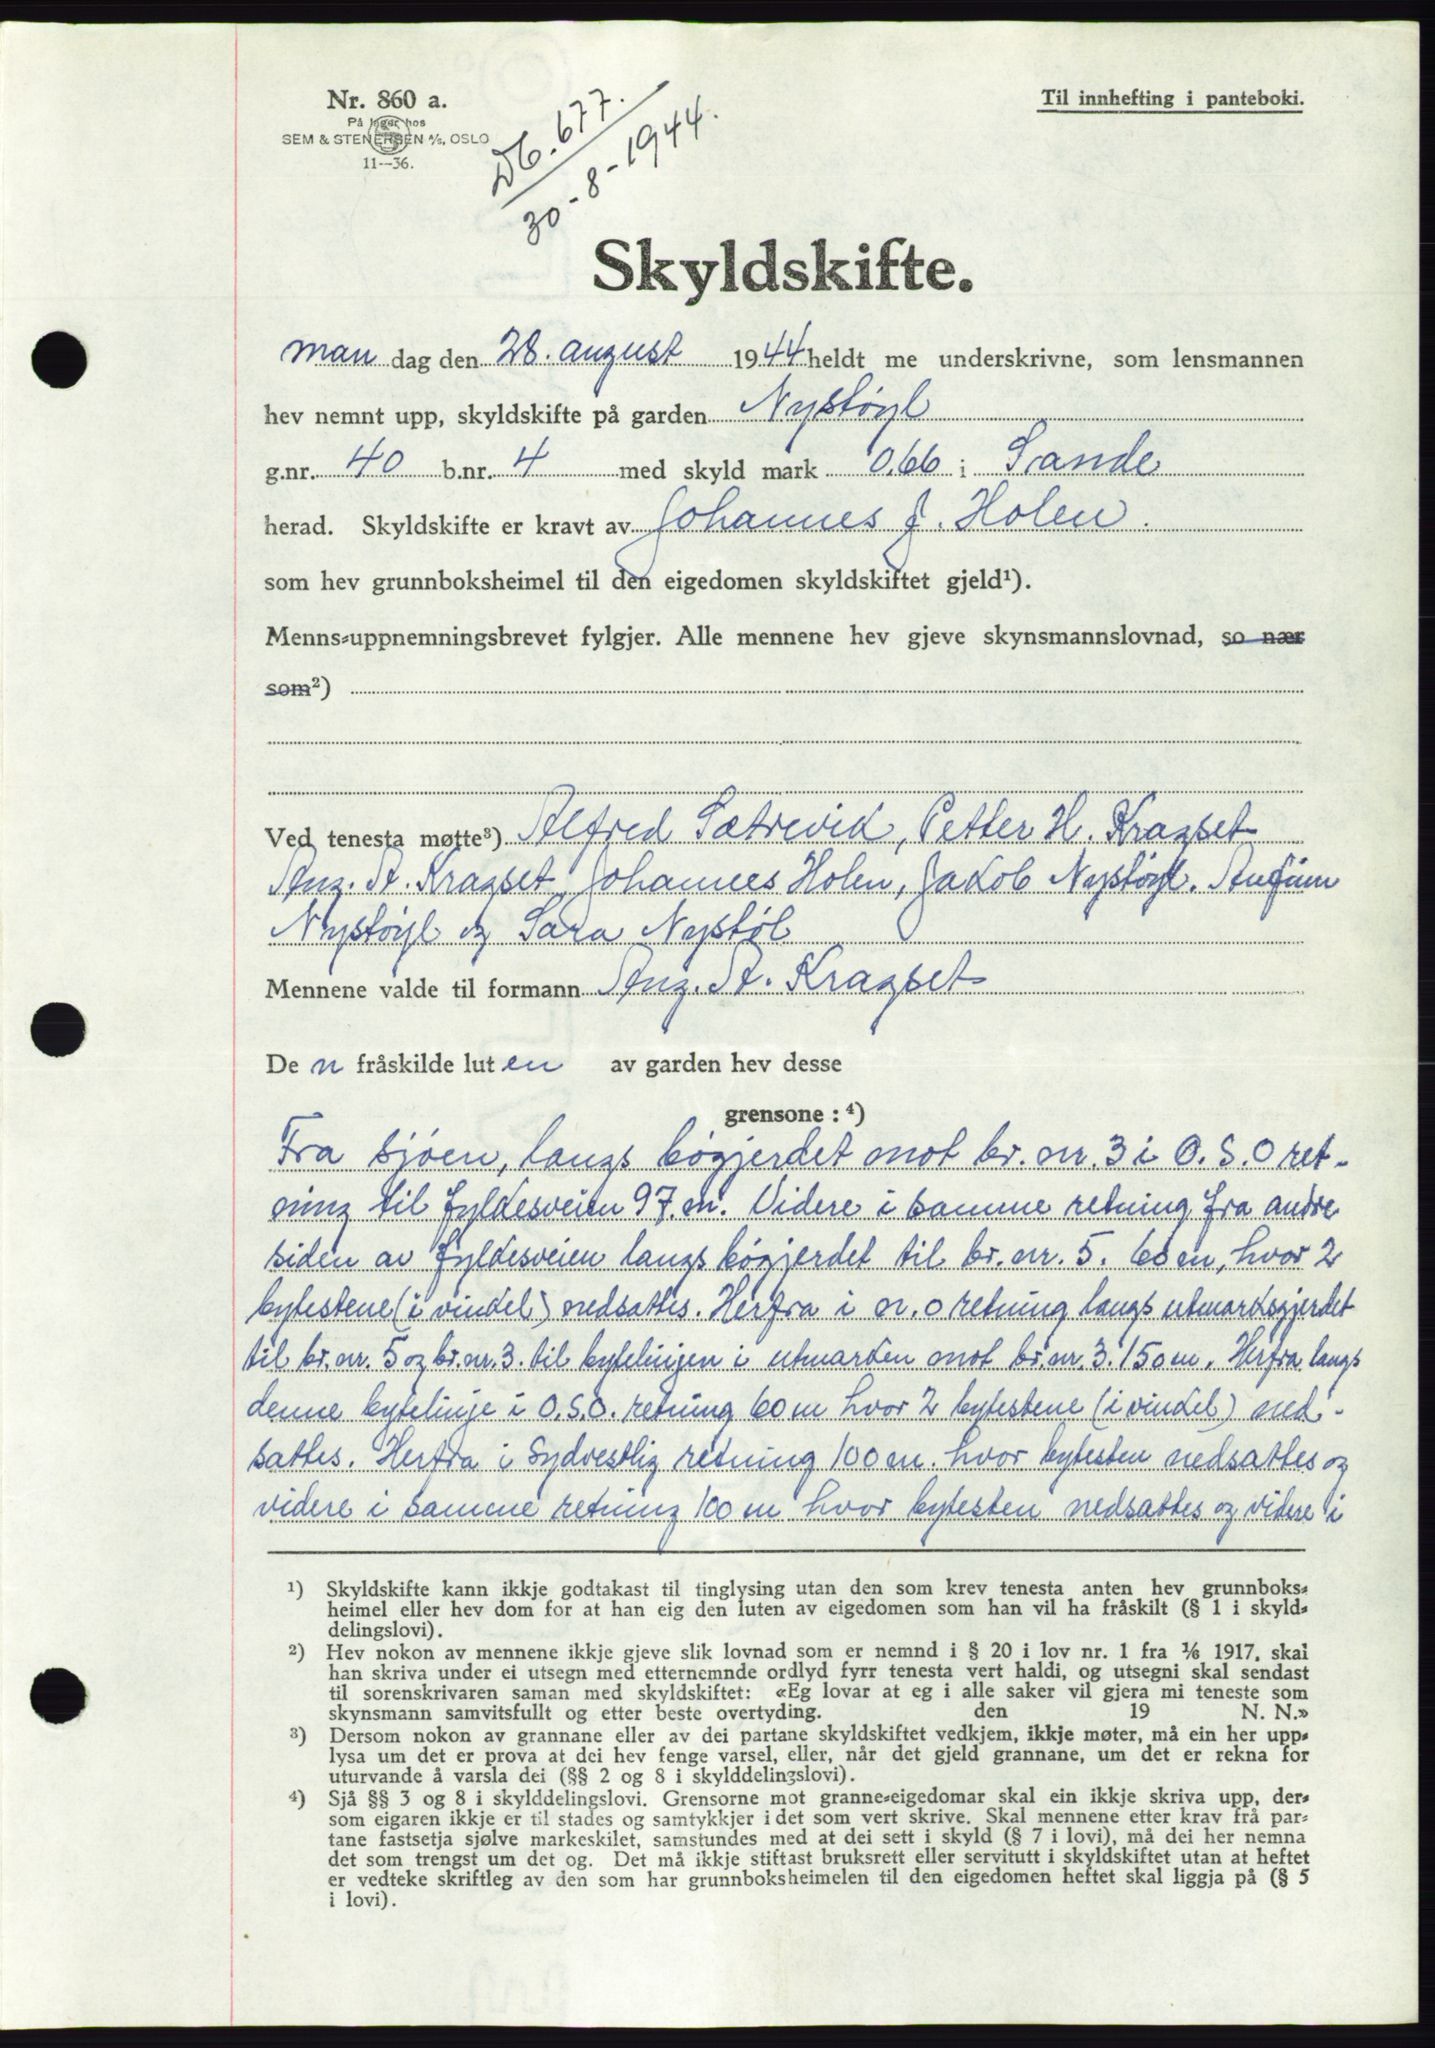 Nr. 860 a.
På lager hos
SEM & STENERSEN A/S, OSLO
11—36.
Til innhefting i panteboki.
Db. 677.
30-8-1944.
Skyldskifte.
man dag den 28. august 1944 heldt me underskrivne, som lensmannen
hev nemnt upp, skyldskifte på garden Nystøyl
g.nr. 40 b.nr. 4 med skyld mark 0,66 i Sande
herad. Skyldskifte er kravt av Johannes J. Holen.
som hev grunnboksheimel til den eigedomen skyldskiftet gjeld¹).
Menns-uppnemningsbrevet fylgjer. Alle mennene hev gjeve skynsmannslovnad, so nær
som²)
Ved tenesta møtte³) Alfred Sætrevik, Petter H. Kragset
Ang. A. Kragset, Johannes Holen, Jakob Nystøyl. Anfinn
Nystøyl og Sara Nystøl
Mennene valde til formann Ang. A. Kragset
De n fråskilde lut en av garden hev desse
grensone : ⁴)
Fra sjøen, langs bøgjerdet mot br. nr. 3 i O. S. O ret-
ning til fylkesveien 97 m. Videre i samme retning fra andre
siden av fylkesveien langs bøgjerdet til br. nr. 5. 60 m, hvor 2
bytestene (i vinkel) nedsattes. Herfra i n. o retning langs utmarksgjerdet
til br. nr. 5 og br. nr. 3. til bytelinjen i utmarken mot br. nr. 3. 150 m. Herfra langs
denne bytelinje i O.S.O. retning 60 m hvor 2 bytestene (i vinkel) ned-
sattes. Herfra i Sydvestlig retning 100 m. hvor bytesten nedsattes og
videre i samme retning 100 m hvor bytesten nedsattes og videre i
¹) Skyldskifte kann ikkje godtakast til tinglysing utan den som krev tenesta anten hev grunnboks-
heimel eller hev dom for at han eig den luten av eigedomen som han vil ha fråskilt (§ 1 i skyld-
delingslovi).
²) Hev nokon av mennene ikkje gjeve slik lovnad som er nemnd i § 20 i lov nr. 1 fra 1/6 1917, skal
han skriva under ei utsegn med etternemnde ordlyd fyrr tenesta vert haldi, og utsegni skal sendast
til sorenskrivaren saman med skyldskiftet: «Eg lovar at eg i alle saker vil gjera mi teneste som
skynsmann samvitsfullt og etter beste overtyding. den 19 N. N.»
³) Dersom nokon av grannane eller av dei partane skyldskiftet vedkjem, ikkje møter, må ein her upp-
lysa um det er prova at dei hev fenge varsel, eller, når det gjeld grannane, um det er rekna for
uturvande å varsla dei (§§ 2 og 8 i skylddelingslovi).
⁴) Sjå §§ 3 og 8 i skylddelingslovi. Grensorne mot granne-eigedomar skal ein ikkje skriva upp, der-
som eigaren ikkje er til stades og samtykkjer i det som vert skrive. Skal mennene etter krav frå par-
tane fastsetja sjølve markeskilet, samstundes med at dei sett i skyld (§ 7 i lovi), må dei her nemna
det som trengst um det og. Det må ikkje stiftast bruksrett eller servitutt i skyldskiftet utan at heftet
er vedteke skriftleg av den som har grunnboksheimelen til den eigedomen heftet skal liggja på (§ 5
i lovi).